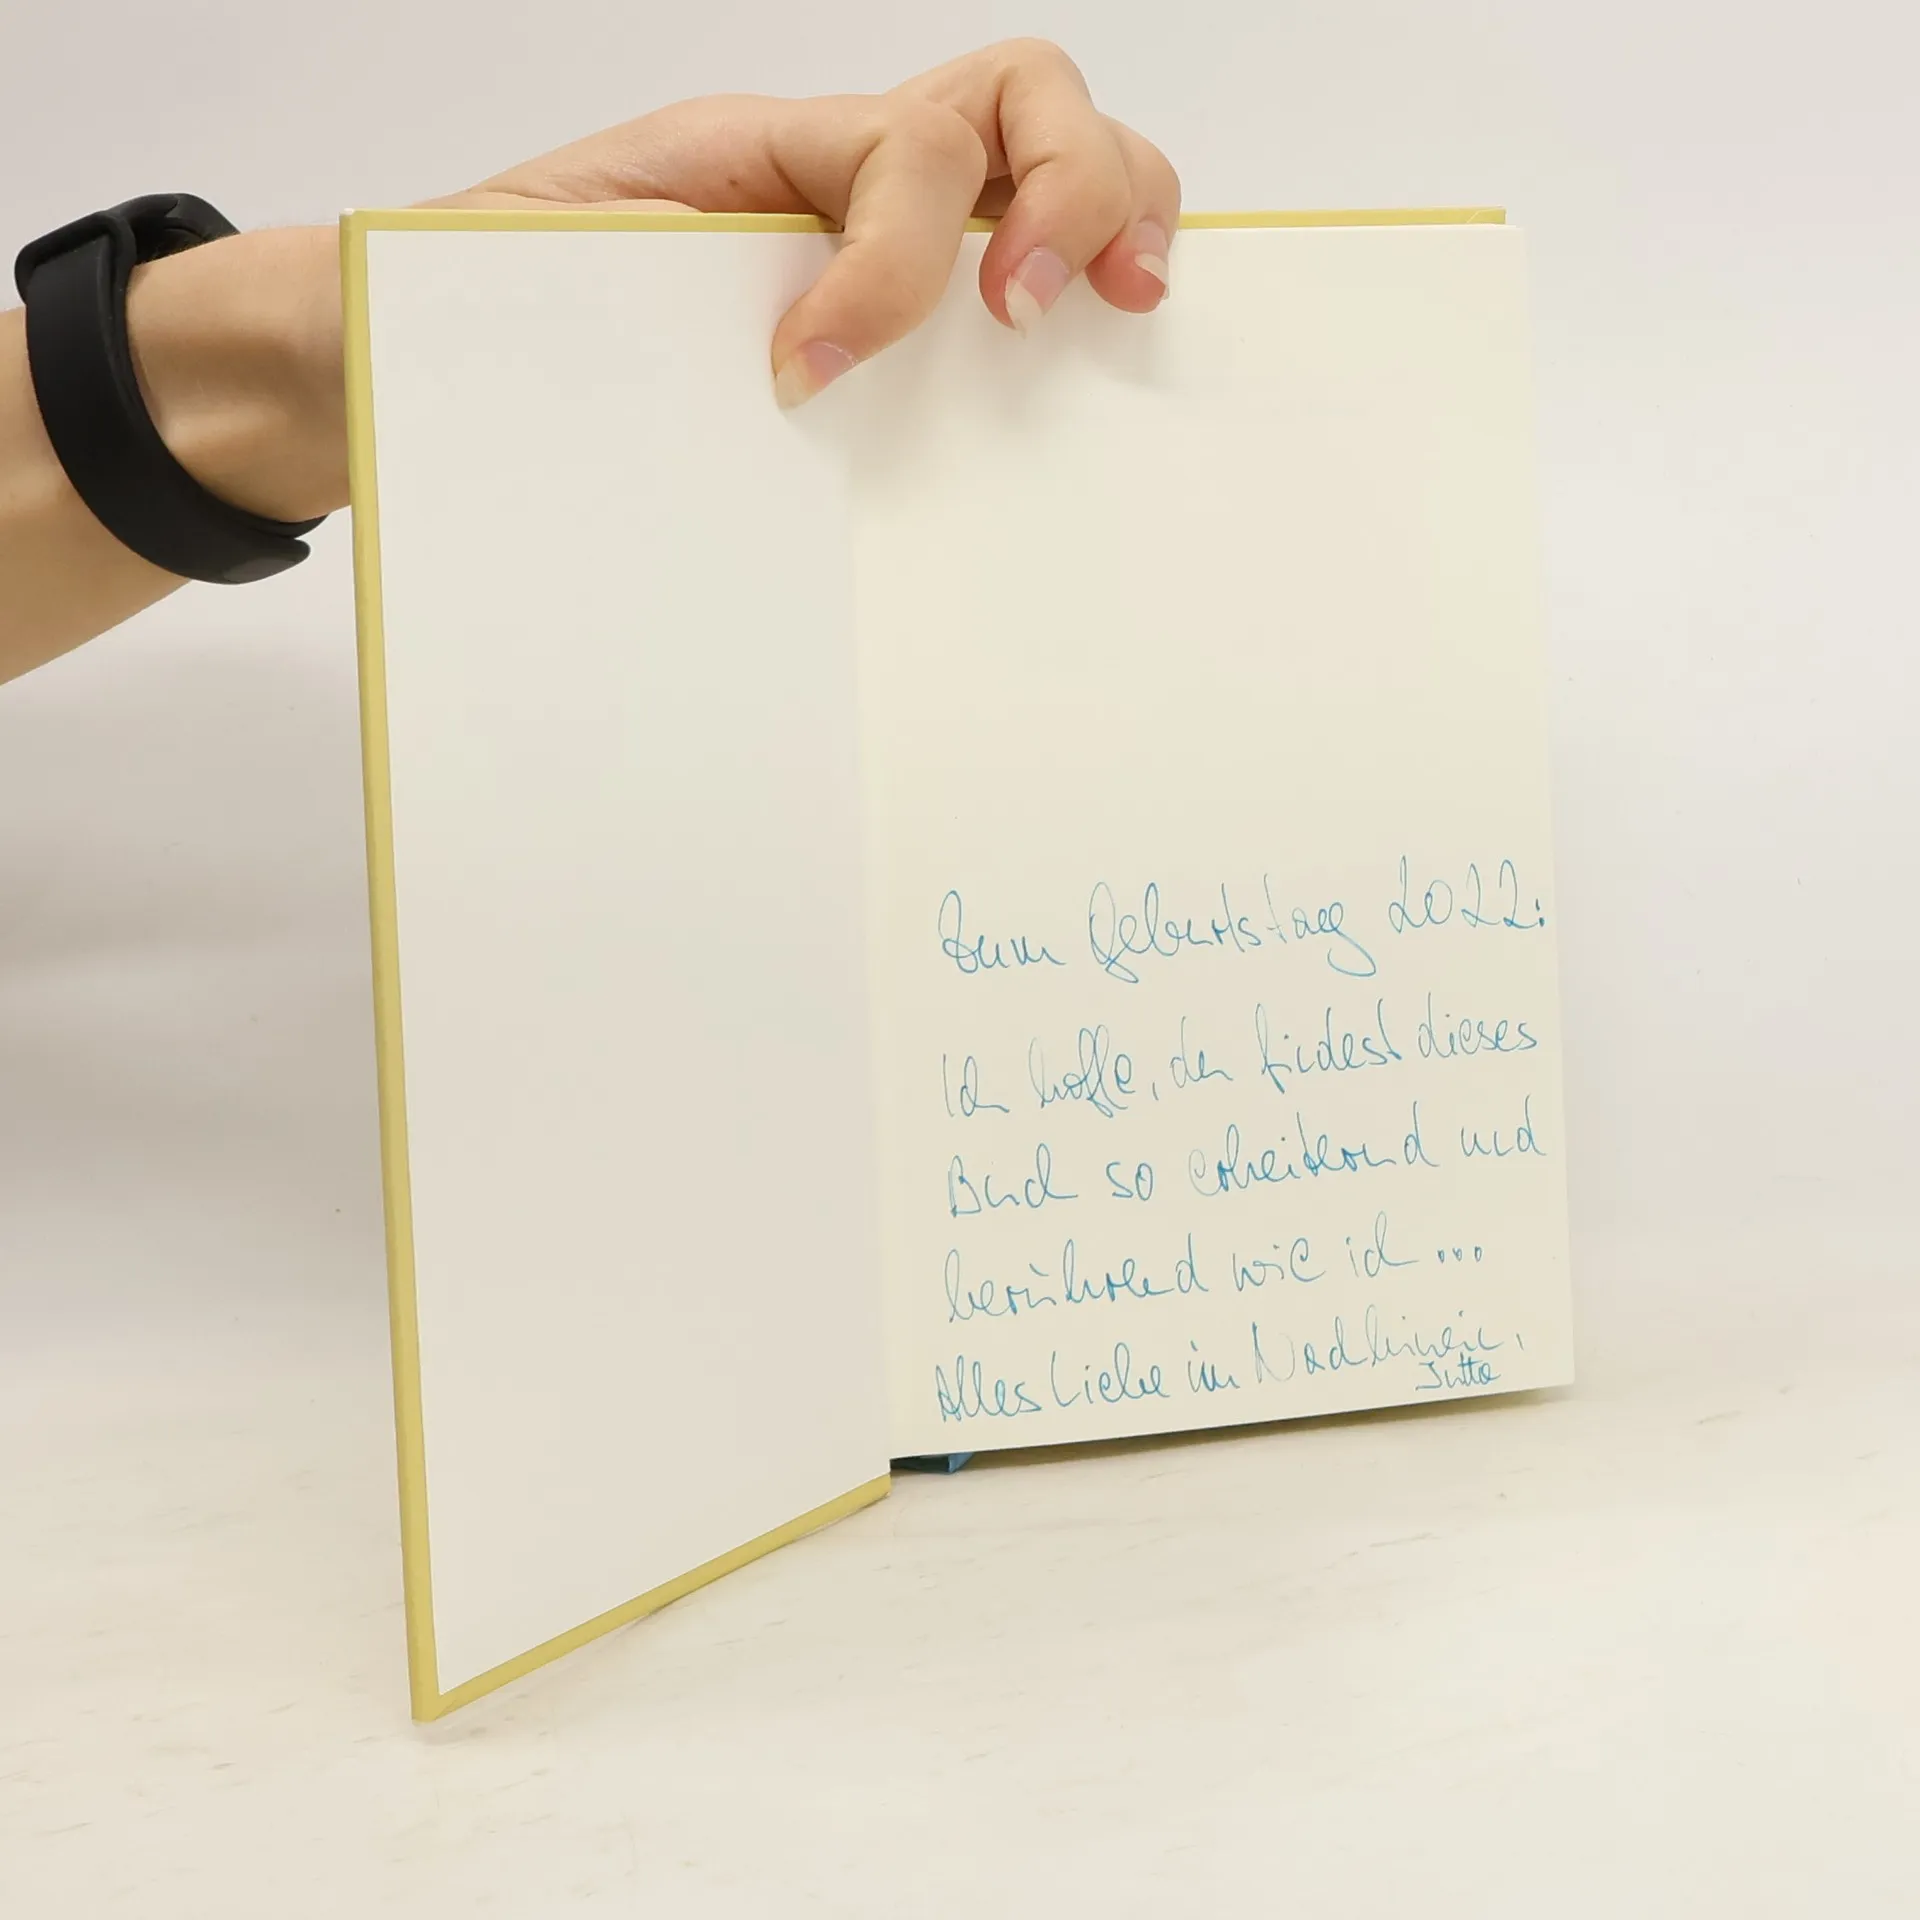 Zum Geburtstag 2022:
Ich hoffe, du findest dieses
Buch so erheiternd und
berührend wie ich ...
Alles Liebe im Nachhinein,
Jutta